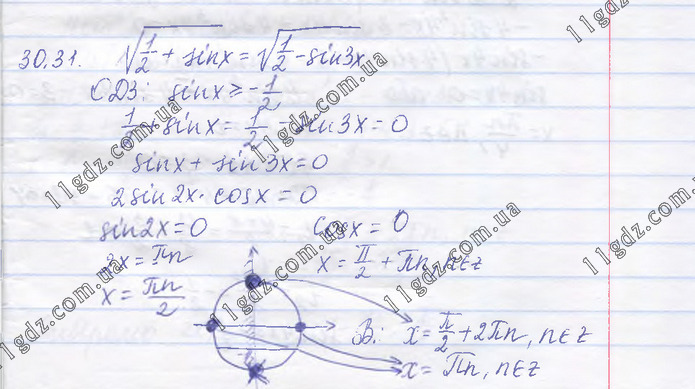 30.31. √(1/2 + sinx) = √(1/2 - sin3x)
ОДЗ: sinx ≥ -1/2
1/2 + sinx = 1/2 - sin3x = 0
sinx + sin3x = 0
2sin2x · cosx = 0
sin2x = 0 cosx = 0
2x = πn x = π/2 + πn, n∈z
x = πn/2
В: x = π/2 + 2πn, n∈z
x = πn, n∈z
11gdz.com.ua
11gdz.com.ua
11gdz.com.ua
11gdz.com.ua
11gdz.com.ua
11gdz.com.ua